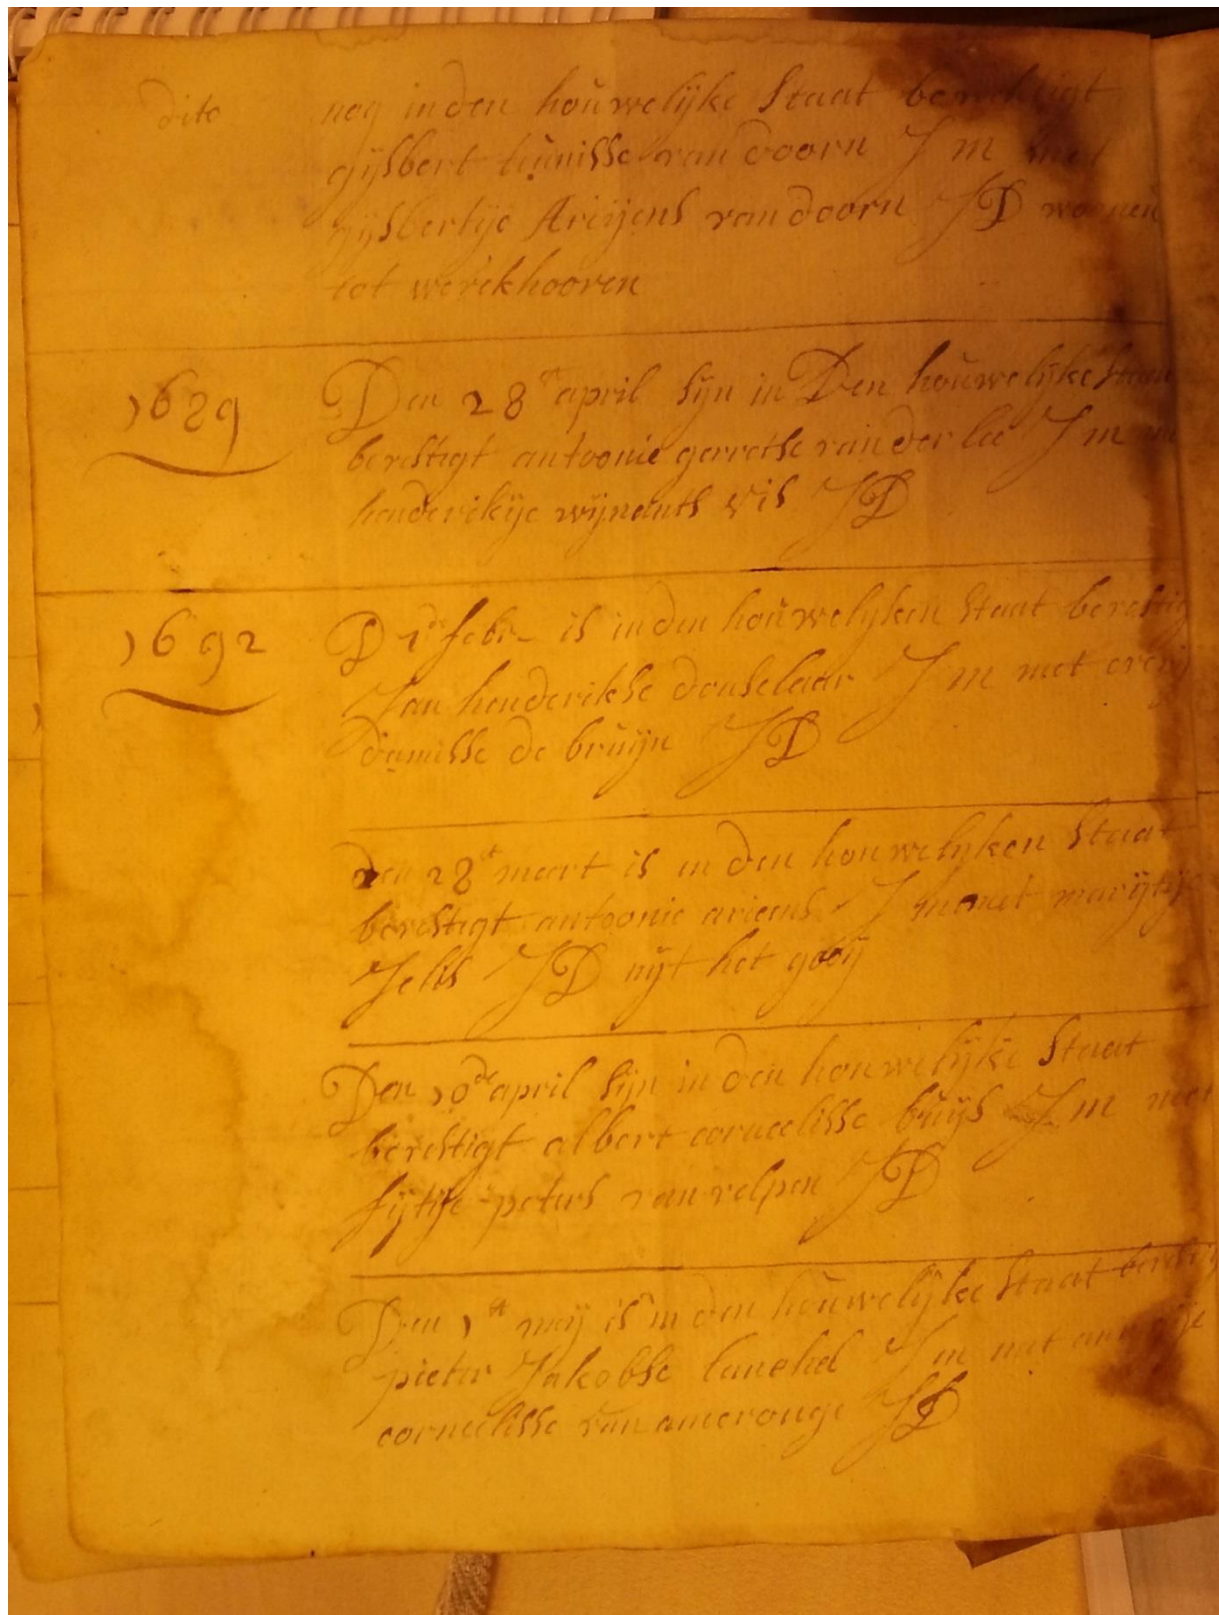 dito nog in den houwelijke Staat bevestigt
gijsbert tunisse van doorn J m met
gijsbertije Arijens van doorn J D woonen
tot werckhooven
1689 Den 28st april sijn in Den houwelijke Staat
bevestigt antoonie gerretse van der lee J m
henderikije wijnants vis J D
1692 D 1de febr is in den houwelijken Staat bevestig
Jan henderikse donselaar J m met
damisse de bruijn J D
den 28st meert is in den houwelijken Staat
bevestigt antoonie ariens J m met marijtije
Jelis J D uijt het gooij
Den 10de april sijn in den houwelijke Staat
bevestigt albert cornelisse buijs J m met
sijtije peters van velpen J D
Den 1st meij is in den houwelijke Staat bevestig
pieter Jakobse J m met
corneelisse van ameronge J D